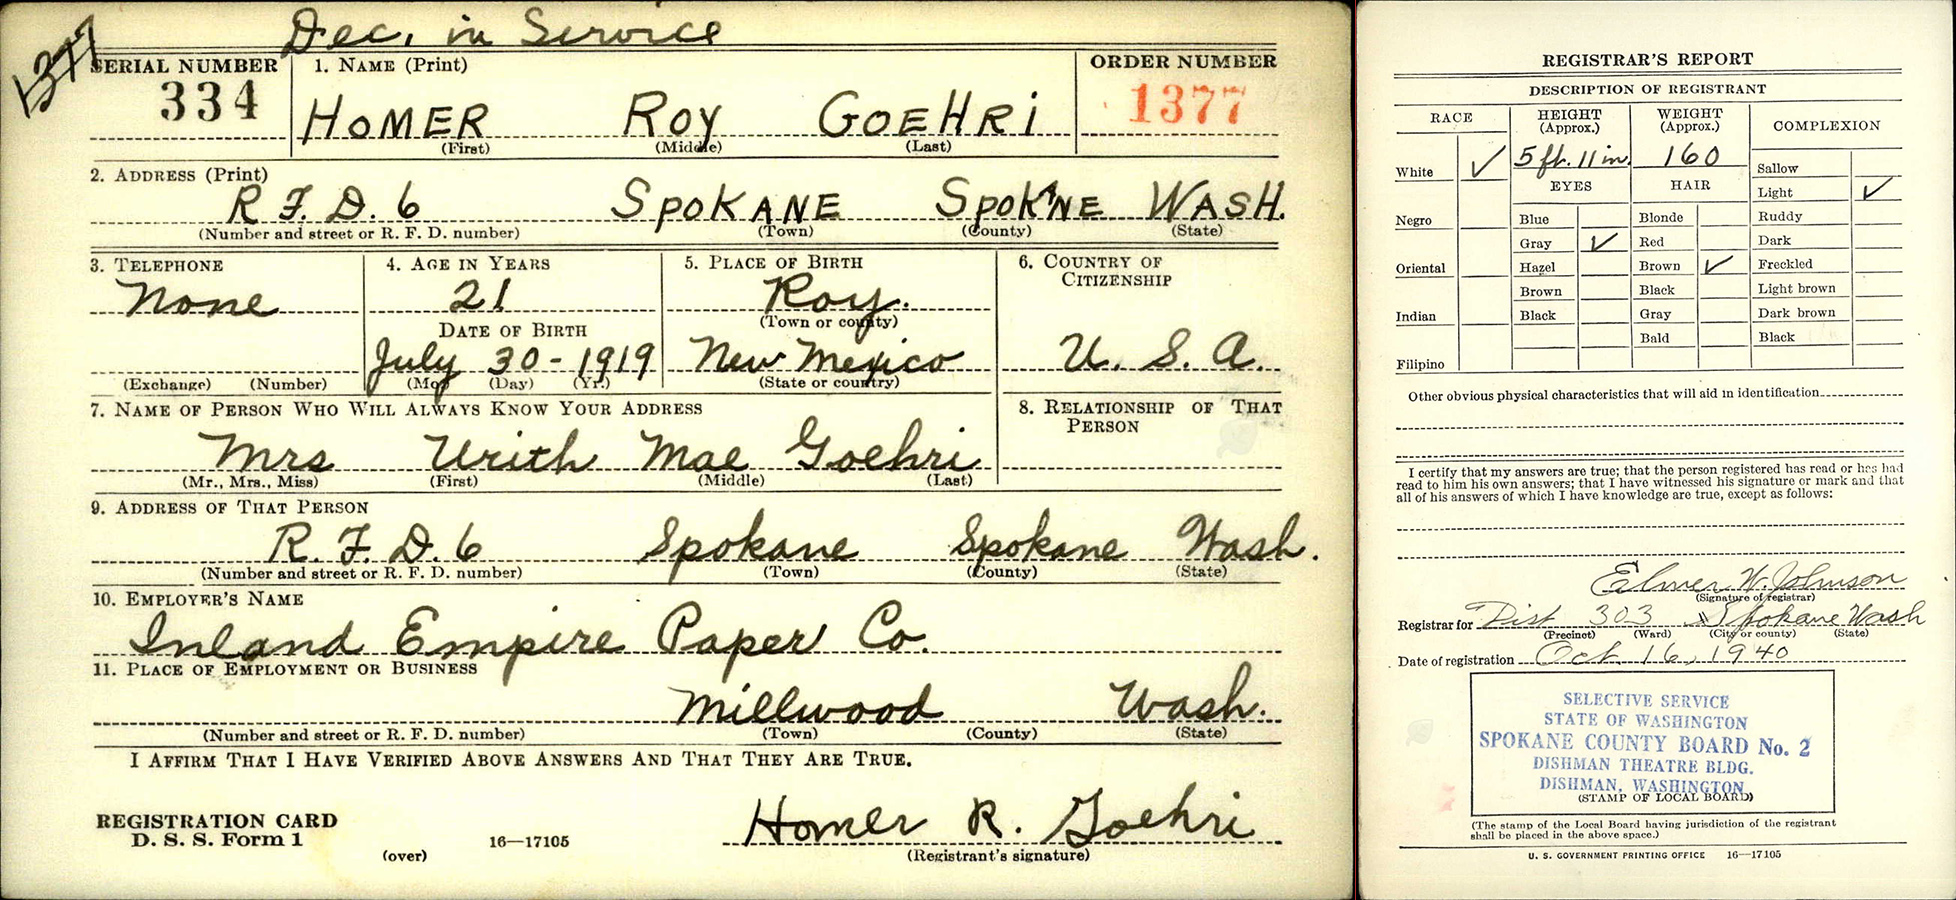 Dec. in Service
1377
SERIAL NUMBER
334
1. NAME (Print)
HOMER ROY GOEHRI
(First) (Middle) (Last)
ORDER NUMBER
1377
2. ADDRESS (Print)
R.F.D. 6 SPOKANE SPOK'NE WASH.
(Number and street or R. F. D. number) (Town) (County) (State)
3. TELEPHONE
None
(Exchange) (Number)
4. AGE IN YEARS
21
DATE OF BIRTH
July 30-1919
(Mo.) (Day) (Yr.)
5. PLACE OF BIRTH
Roy.
(Town or county)
New Mexico
(State or country)
6. COUNTRY OF
CITIZENSHIP
U. S. A.
7. NAME OF PERSON WHO WILL ALWAYS KNOW YOUR ADDRESS
Mrs Urith Mae Goehri
(Mr., Mrs., Miss) (First) (Middle) (Last)
8. RELATIONSHIP OF THAT
PERSON
9. ADDRESS OF THAT PERSON
R.F.D. 6 Spokane Spokane Wash.
(Number and street or R. F. D. number) (Town) (County) (State)
10. EMPLOYER'S NAME
Inland Empire Paper Co.
11. PLACE OF EMPLOYMENT OR BUSINESS
Millwood Wash.
(Number and street or R. F. D. number) (Town) (County) (State)
I AFFIRM THAT I HAVE VERIFIED ABOVE ANSWERS AND THAT THEY ARE TRUE.
REGISTRATION CARD
D. S. S. Form 1
(over)
16—17105
Homer R. Goehri
(Registrant's signature)
REGISTRAR'S REPORT
DESCRIPTION OF REGISTRANT
RACE
White ✓
Negro
Oriental
Indian
Filipino
HEIGHT
(Approx.)
5 ft. 11 in.
WEIGHT
(Approx.)
160
EYES
Blue
Gray ✓
Hazel
Brown
Black
HAIR
Blonde
Red
Brown ✓
Black
Gray
Bald
COMPLEXION
Sallow
Light ✓
Ruddy
Dark
Freckled
Light brown
Dark brown
Black
Other obvious physical characteristics that will aid in identification
I certify that my answers are true; that the person registered has read or has had
read to him his own answers; that I have witnessed his signature or mark and that
all of his answers of which I have knowledge are true, except as follows:
Elmer W. Johnson
(Signature of registrar)
Registrar for Dist 303 Spokane Wash
(Precinct) (Ward) (City or county) (State)
Date of registration Oct. 16, 1940
SELECTIVE SERVICE
STATE OF WASHINGTON
SPOKANE COUNTY BOARD No. 2
DISHMAN THEATRE BLDG.
DISHMAN, WASHINGTON
(STAMP OF LOCAL BOARD)
(The stamp of the Local Board having jurisdiction of the registrant
shall be placed in the above space.)
U. S. GOVERNMENT PRINTING OFFICE 16—17105